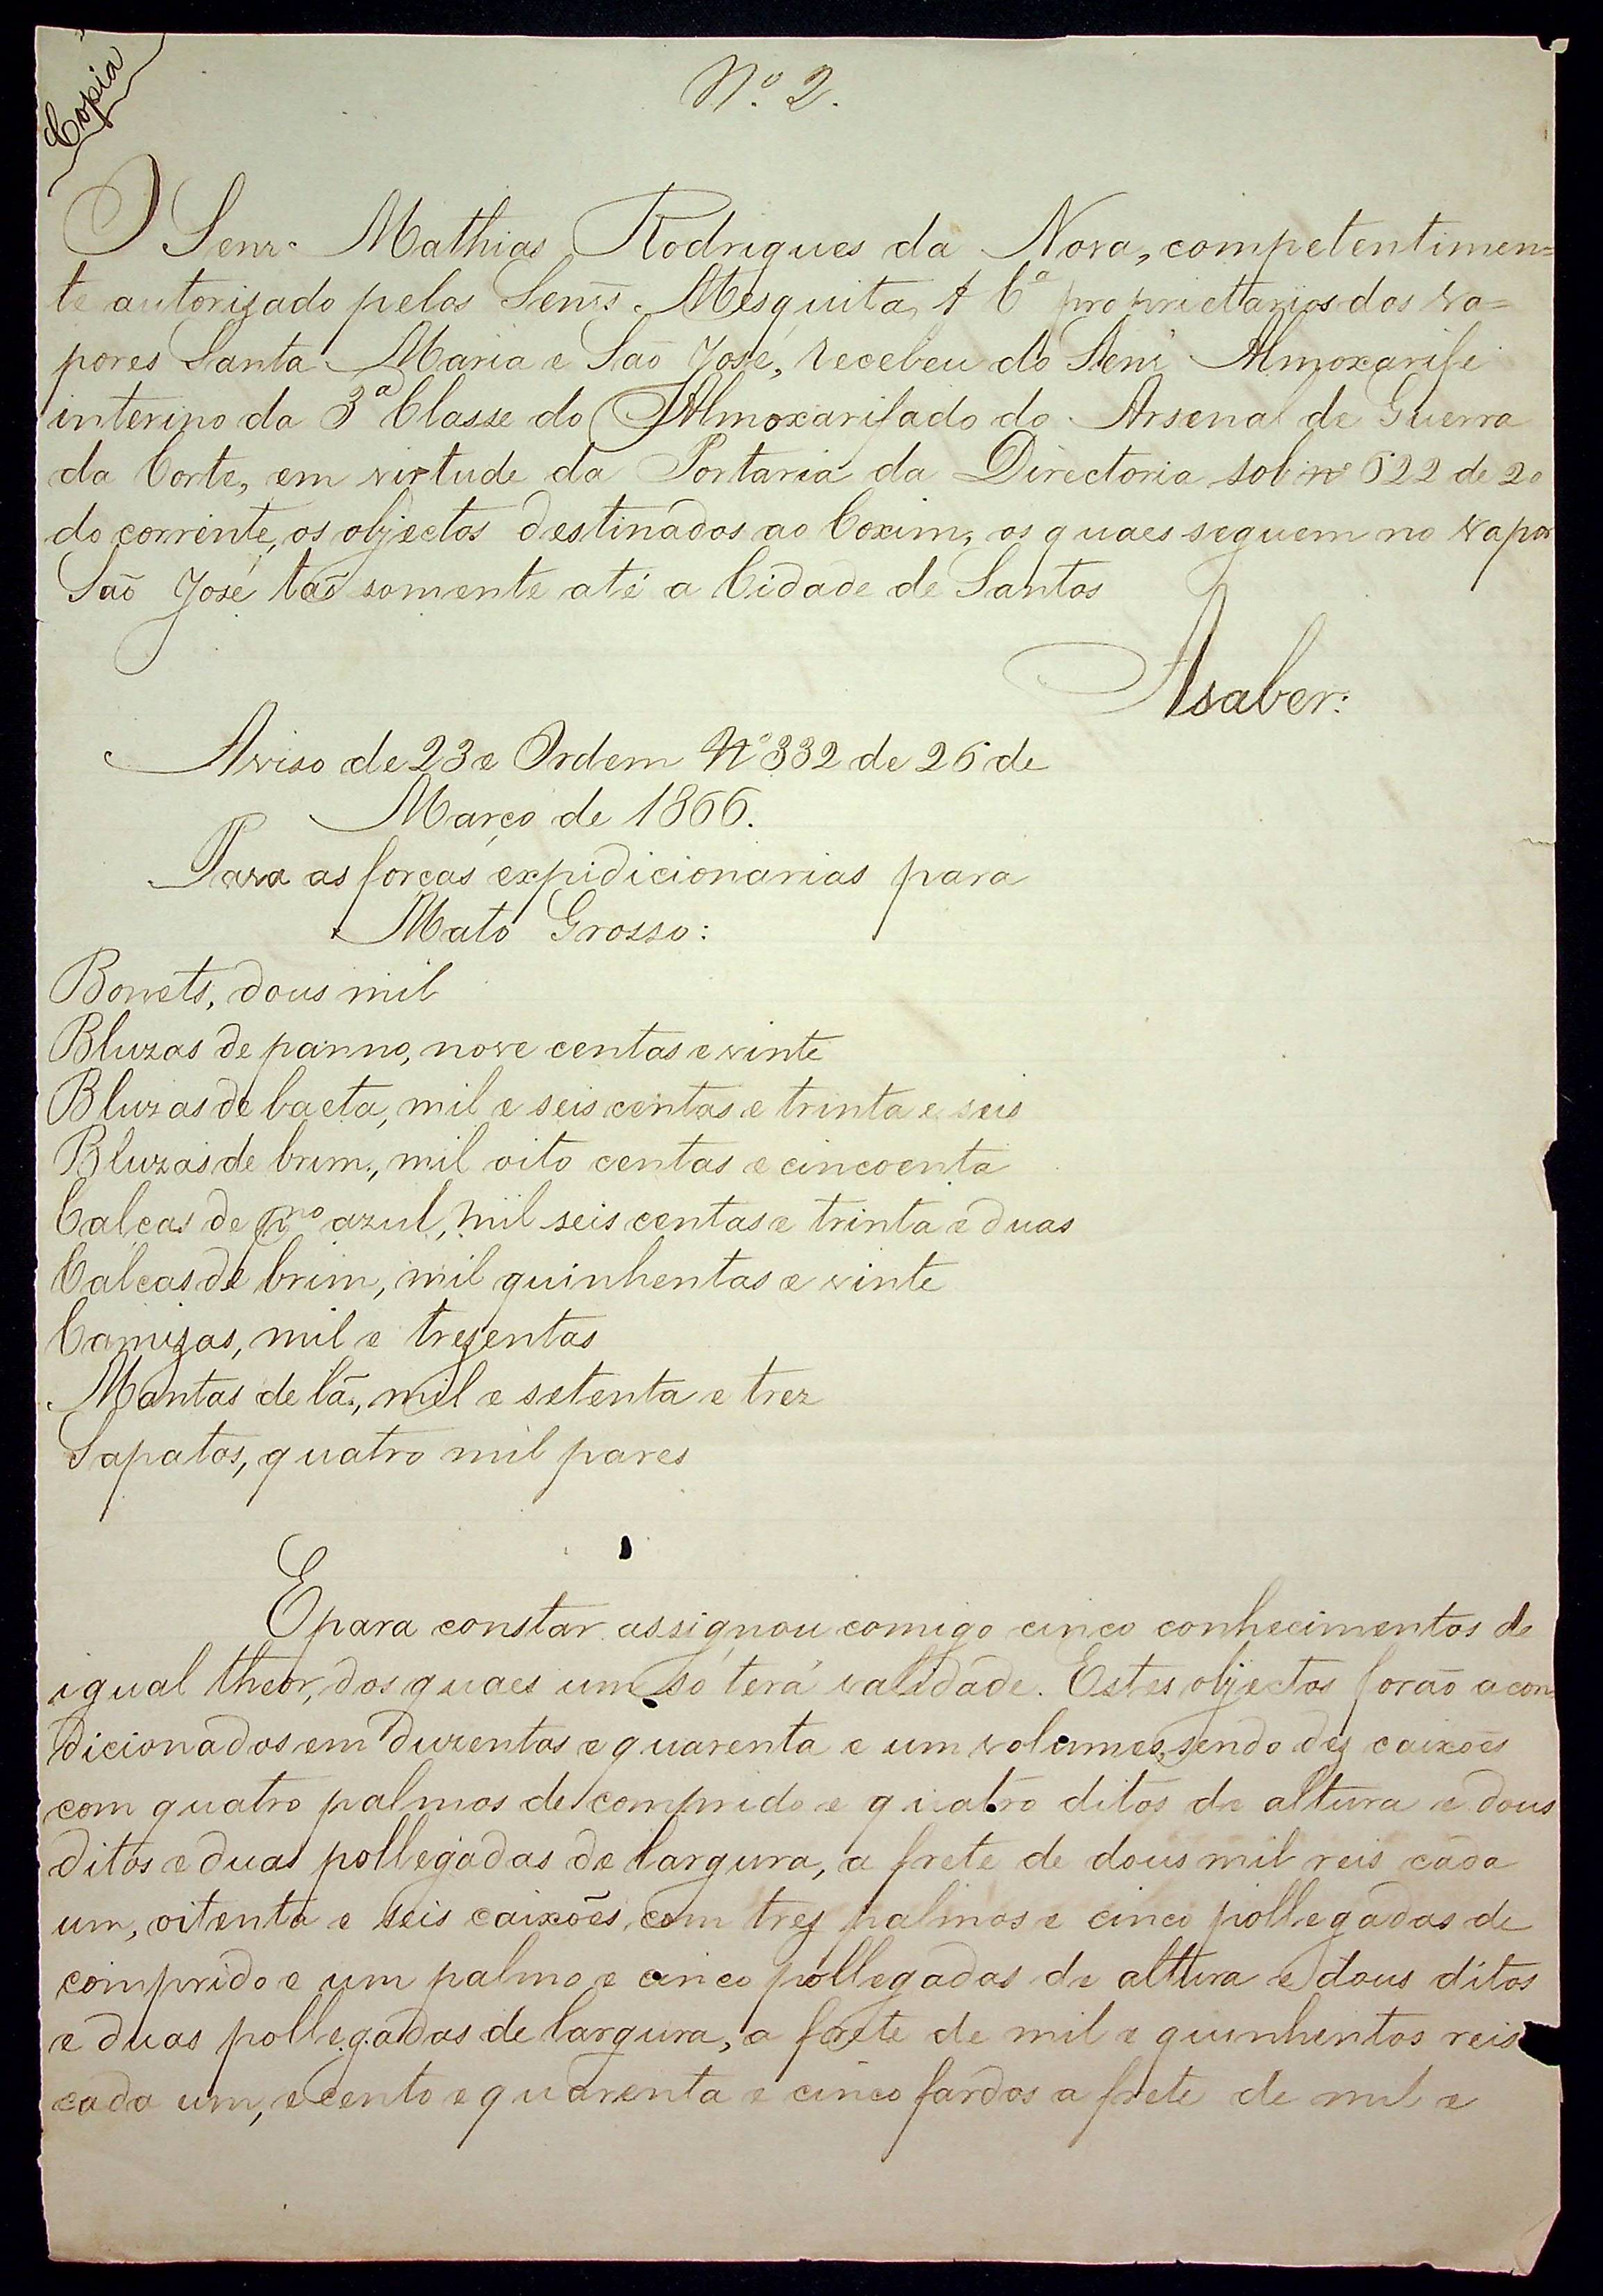 Copia
Nº 2.
O Senr. Mathias Rodrigues da Nova, competentimen=
te autorisado pelos Senrs. Mesquita, & Cª proprietarios dos va=
pores Santa Maria e São José, recebeu do Senr Almoxarife
interino da 3ª Classe do Almoxarifado do Arsenal de Guerra
da Corte, em virtude da Portaria da Directoria sob nº 522 de 20
do corrente, os objectos destinados ao Coxim, os quaes seguem no vapor
São José tão somente até a Cidade de Santos
Asaber:
Aviso de 23 e Ordem Nº 332 de 26 de
Março de 1866.
Para as forças expidicionarias para
Mato Grosso:
Bonets, dous mil
Bluzas de panno, nove centas e vinte
Bluzas de baeta, mil e seis centas e trinta e seis
Bluzas de brim, mil oito centas e cincoenta
Calças de pnº azul, mil seis centas e trinta e duas
Calças de brim, mil quinhentas e vinte
Camizas, mil e trezentas
Mantas de lã, mil e setenta e trez
Sapatos, quatro mil pares
E para constar assignou comigo cinco conhecimentos de
igual theor, dos quaes um só terá validade. Estes objectos forão acon
dicionados em duzentos e quarenta e um volumes, sendo dez caixoes
com quatro palmos de comprido e quatro ditos de altura e dous
ditos e duas pollegadas de largura, a frete de dous mil reis cada
um, oitenta e seis caixões, com trez palmos e cinco pollegadas de
comprido e um palmo e cinco pollegadas de altura e dous ditos
e duas pollegadas de largura, a frete de mil e quinhentos reis
cada um, e cento e quarenta e cinco fardos a frete de mil e